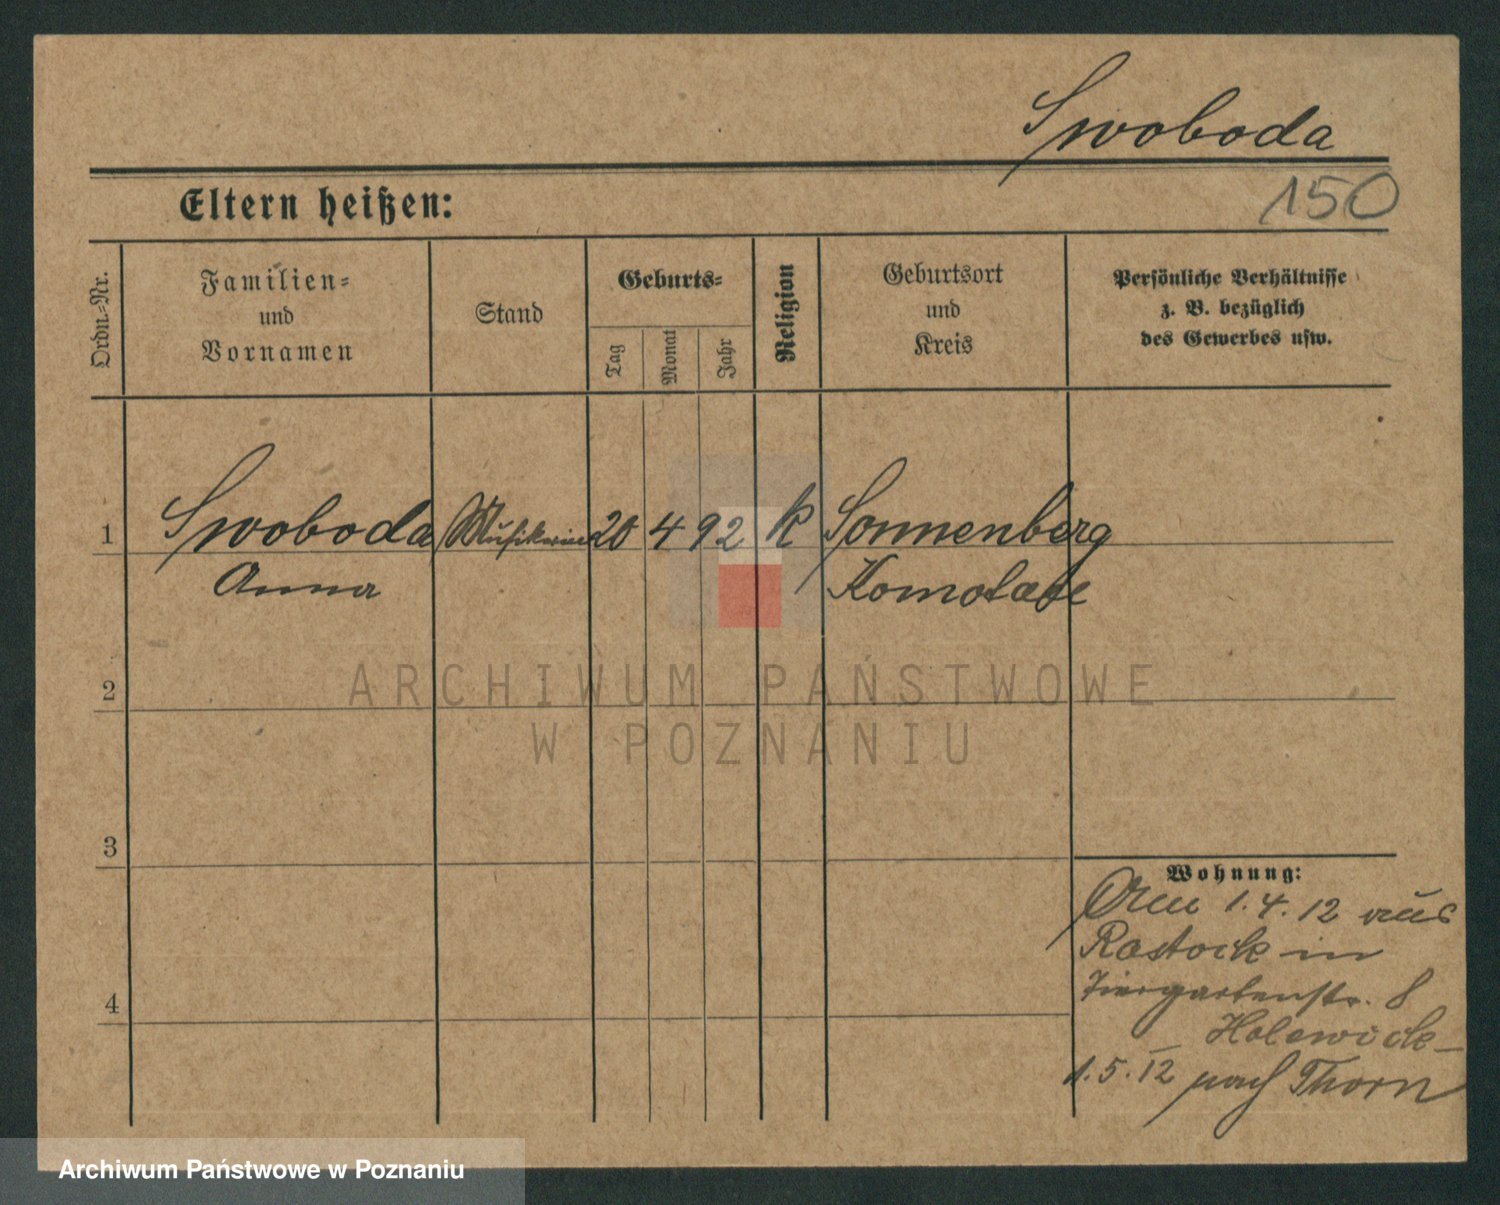 Swoboda
Eltern heißen:
150
Ordn.=Nr.
Familien=
und
Vornamen
Stand
Geburts=
Tag
Monat
Jahr
Religion
Geburtsort
und
Kreis
Persönliche Verhältnisse
z. B. bezüglich
des Gewerbes usw.
1 Swoboda Musikerin 20 4 92 k Sonnenberg
Anna
2
3
4
Wohnung:
Am 1.4.12 aus
Rostock in
Tiergartenstr. 8
1.5.12 nach Thorn
ARCHIWUM PAŃSTWOWE
W POZNANIU
Archiwum Państwowe w Poznaniu